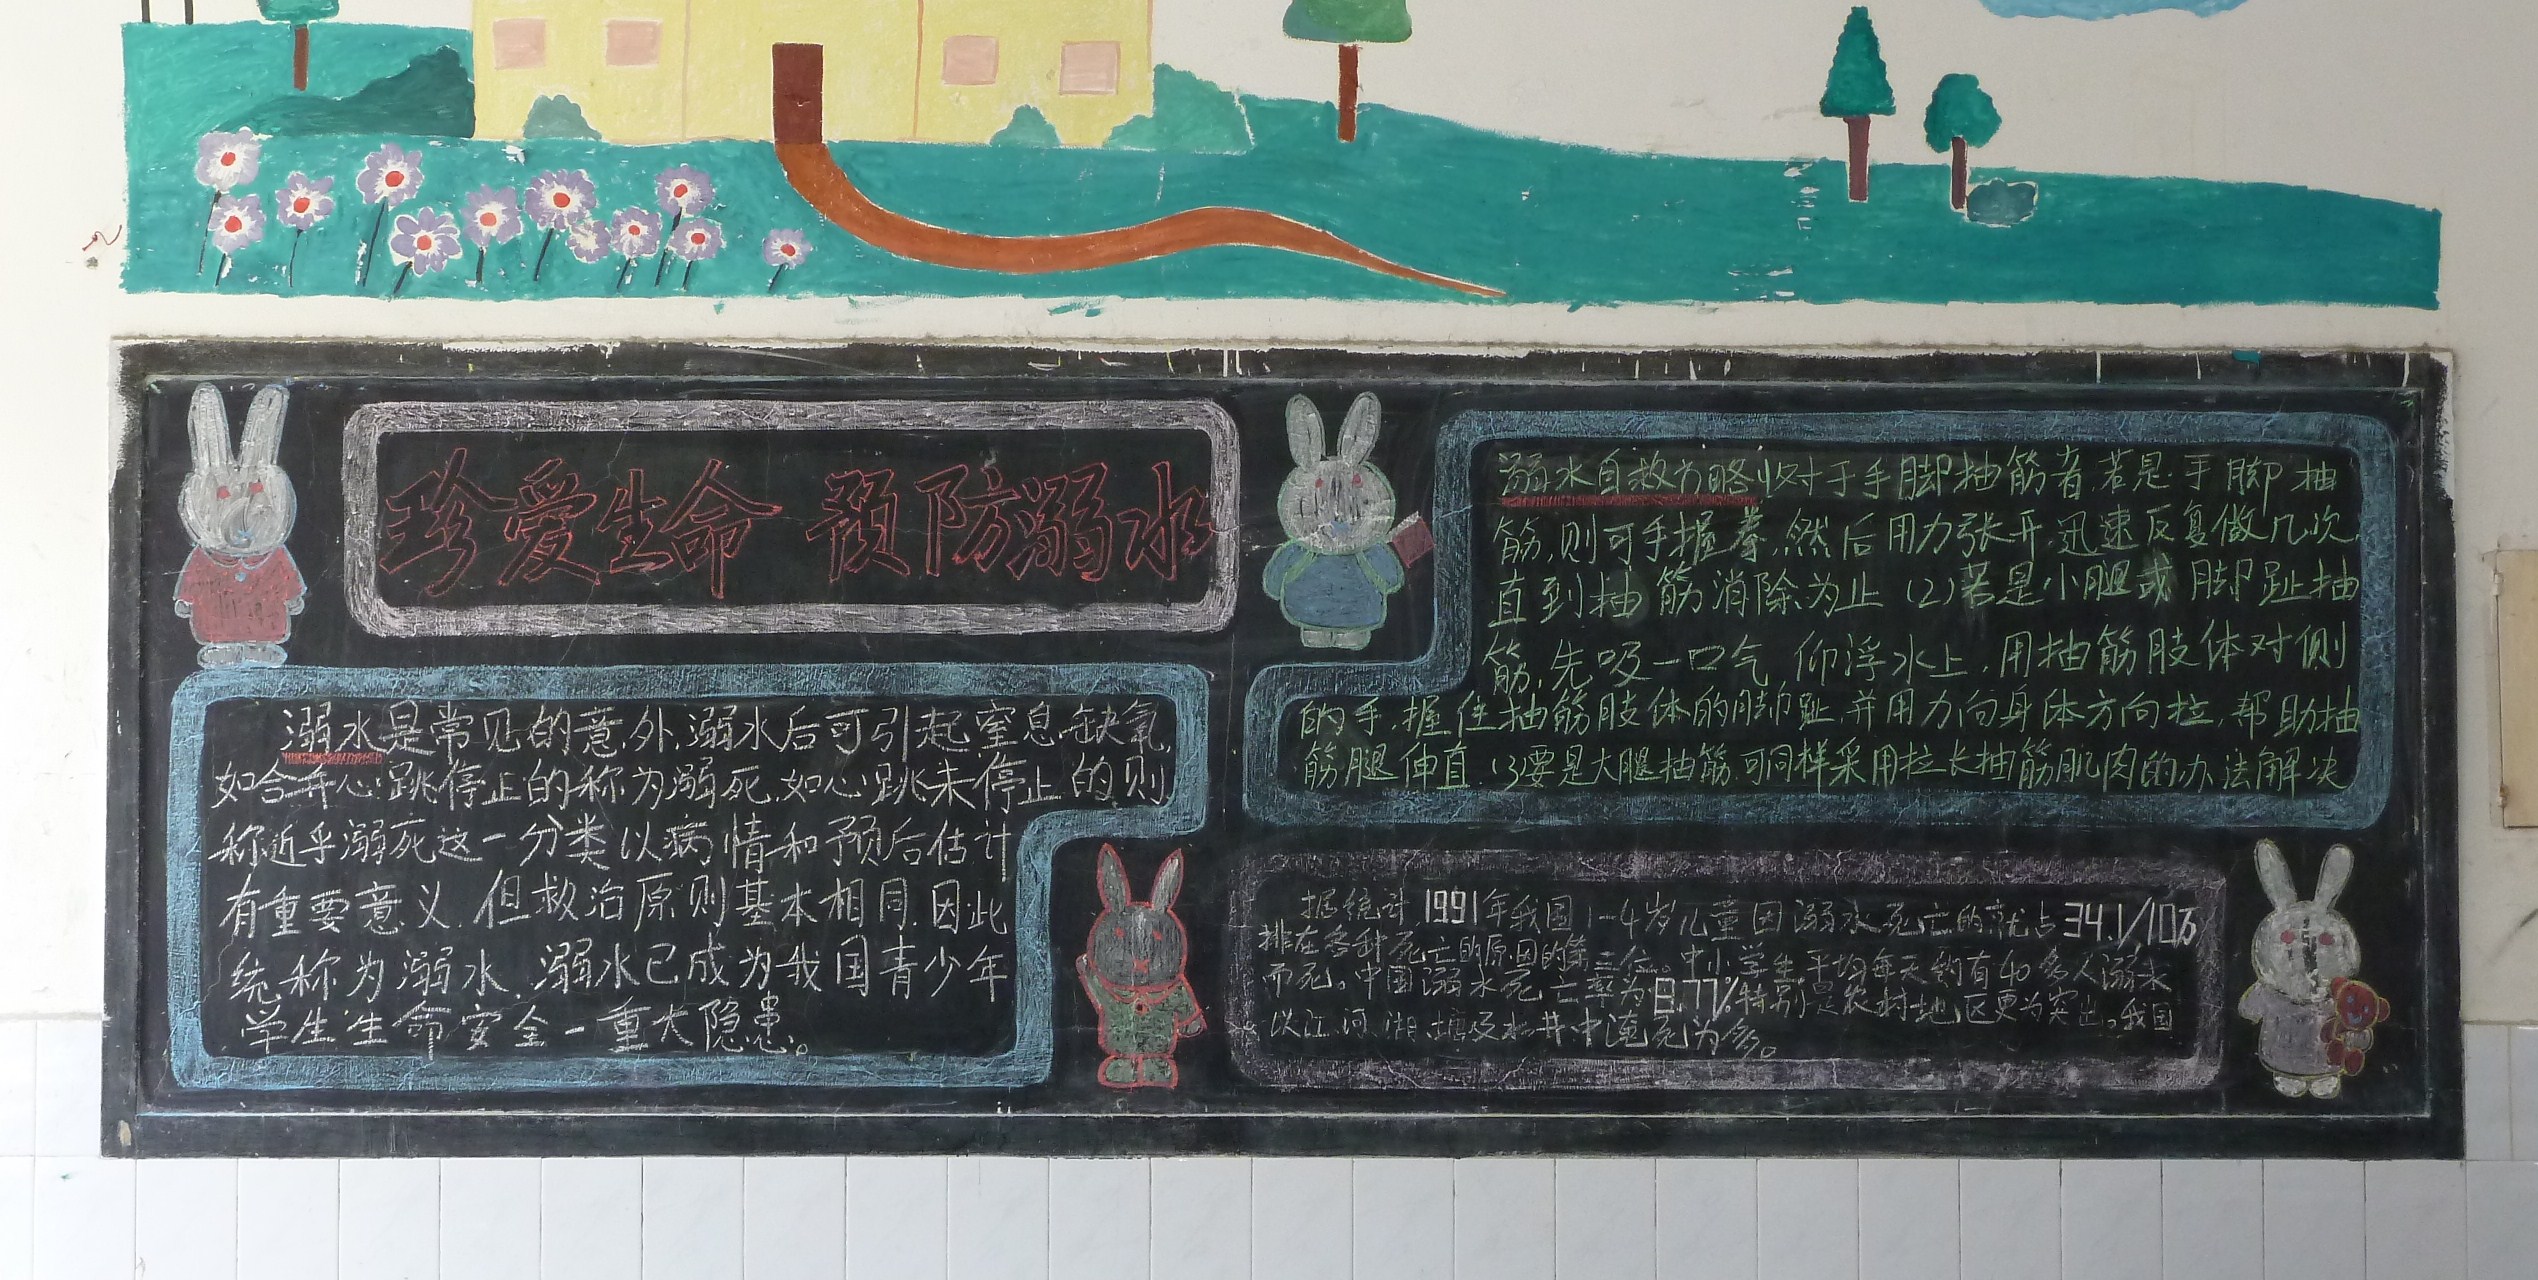 珍爱生命 预防溺水
溺水是常见的意外,溺水后可引起窒息缺氧,
如合并心跳停止的称为溺死,如心跳未停止的则
称近乎溺死这一分类以病情和预后估计
有重要意义,但救治原则基本相同,因此
统称为溺水,溺水已成为我国青少年
学生生命安全一重大隐患。
溺水自救方略对于手脚抽筋者,若是手脚抽
筋,则可手握拳,然后用力张开,迅速反复做几次,
直到抽筋消除为止(2)若是小腿或脚趾抽
筋,先吸一口气 仰浮水上,用抽筋肢体对侧
的手,握住抽筋肢体的脚趾,并用力向身体方向拉,帮助抽
筋腿伸直.(3)要是大腿抽筋,可同样采用拉长抽筋肌肉的办法解决
据统计,1991年我国1-4岁儿童因溺水死亡的就占34.1/10万
排在各种死亡的原因的第三位。中小学生平均每天约有40多人溺水
而死。中国溺水死亡率为8.77%特别是农村地区更为突出。我国
以江,河,湖,塘及水井中淹死为多。